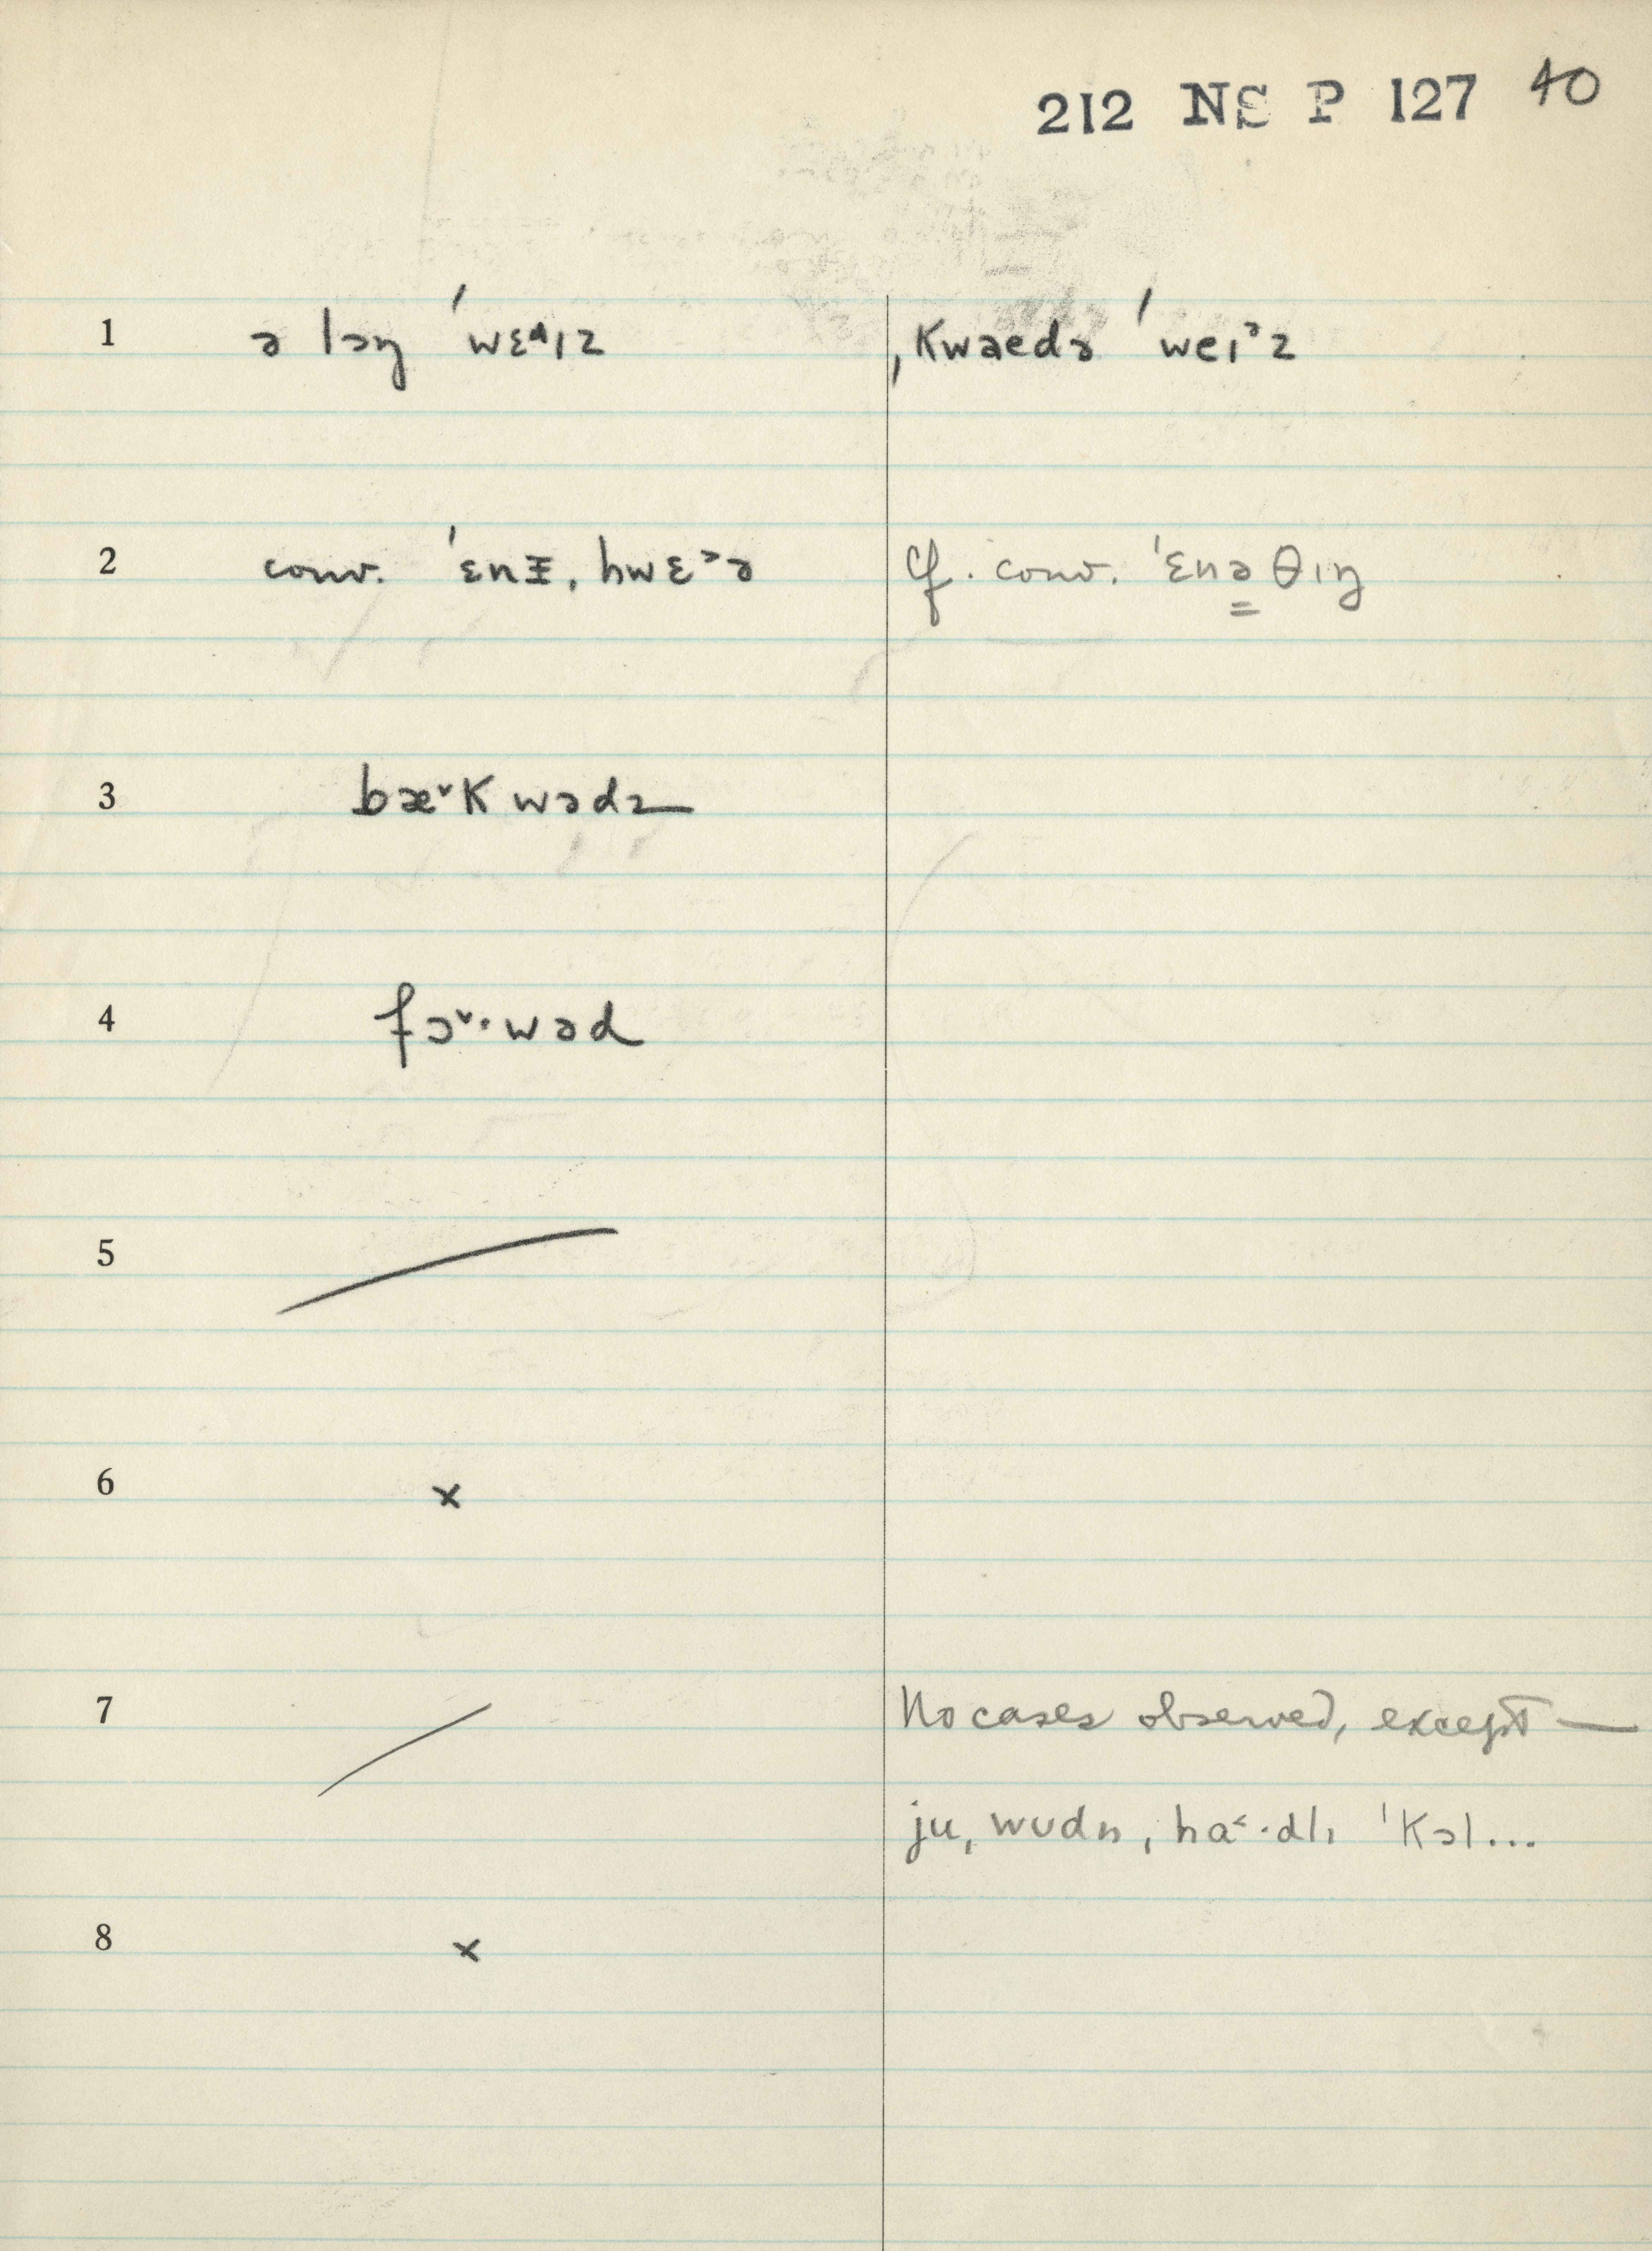 212 NS P 127 40
1 ə lɔŋ ˈwɛ^ɪz ˌkwaedə ˈweɪᵊz
2 conv. ˈɛnɪ̵, hwɛ˃ə cf. conv. ˈɛnə θɪŋ
3 bæ˅k wədz
4 fɔ˅·wəd
5
6 x
7 No cases observed, except —
ju, wʊdn, ha˂·dlɪ ˈkɔl...
8 x